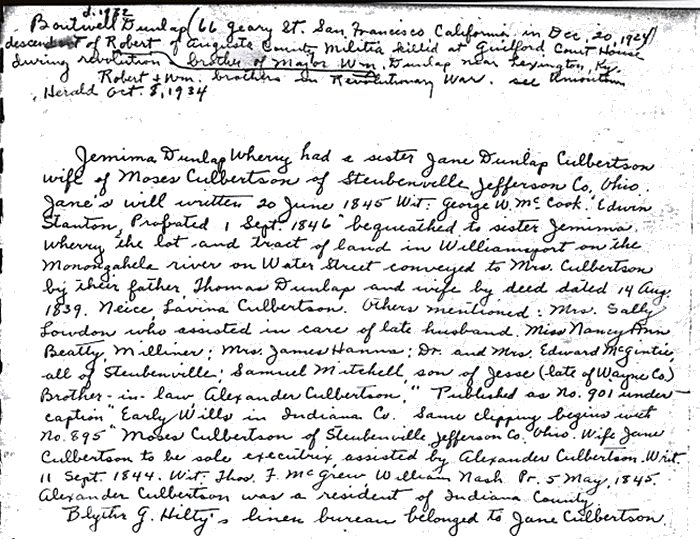 d. 1932
Boutwell Dunlap (66 Geary St. San Francisco, California, in Dec. 20, 1924)
descendent of Robert of Augusta County Militia killid at Guilford Court House
during revolution brother of Major Wm. Dunlap near Lexington, Ky.
Robert & Wm. brothers in Revolutionary War. see Uniontown
Herald Oct. 8, 1934
Jemima Dunlap Wherry had a sister Jane Dunlap Culbertson
wife of Moses Culbertson of Steubenville Jefferson Co. Ohio.
Jane's will written 20 June 1845 Wit. George W. McCook. Edwin
Stanton, Probated 1 Sept. 1846 "bequeathed to sister Jemima
Wherry the lot and tract of land in Williamsport on the
Monongahela river on Water Street conveyed to Mrs. Culbertson
by their father, Thomas Dunlap and wife by deed dated 14 Aug.
1839. Neice, Lavina Culbertson. Others mentioned: Mrs. Sally
Lowdon who assisted in care of late husband. Miss Nancy Ann
Beatty, Milliner; Mrs. James Hanna; Dr. and Mrs. Edward McGintie,
all of Steubenville; Samuel Mitchell, son of Jesse (late of Wayne Co.)
Brother-in-law, Alexander Culbertson." Published as No. 901 under
caption "Early Wills in Indiana Co. Same clipping begins wit
No. 895 "Moses Culbertson of Steubenville Jefferson Co. Ohio. Wife Jane
Culbertson to be sole executrix assisted by Alexander Culbertson. Writ.
11 Sept. 1844. Wit. Thos. F. McGrew, William Nash Pr. 5 May, 1845.
Alexander Culbertson was a resident of Indiana County.
Blythe G. Hilty's linen bureau belonged to Jane Culbertson.